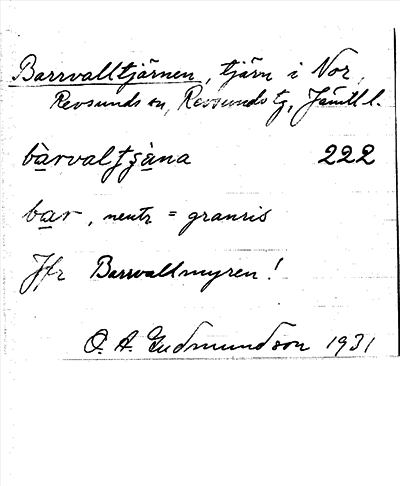 Barrvalltjärnen, tjärn i Nor,
Revsunds sn, Revsunds tg, Jämtl l.
bàrvaltjäna 222
bar, neutr = granris
Jfr Barrvallmyren!
O. A. Gudmundson 1931